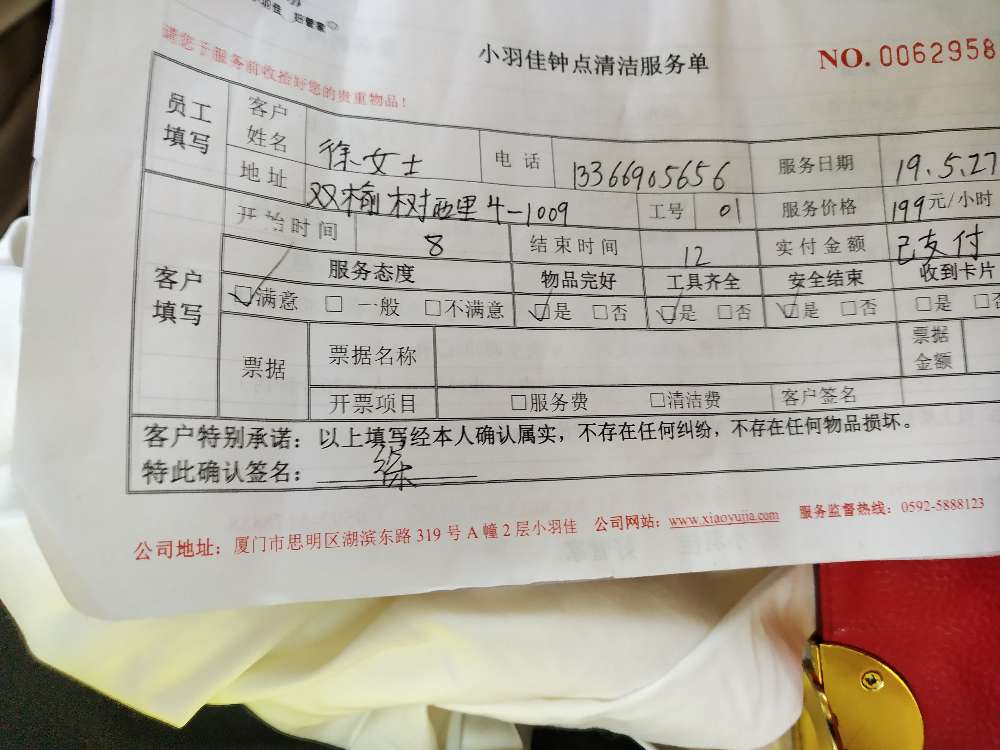 小羽佳 好管家
请您于服务前收拾好您的贵重物品！
小羽佳钟点清洁服务单
NO. 0062958
员工填写
客户姓名 徐女士 电话 13366905656 服务日期 19.5.27
地址 双榆树西里4-1009 工号 01 服务价格 199元/小时
客户填写
开始时间 8 结束时间 12 实付金额 已支付
服务态度 物品完好 工具齐全 安全结束 收到卡片
☑满意 □一般 □不满意 ☑是 □否 ☑是 □否 ☑是 □否 □是 □否
票据 票据名称 票据金额
开票项目 □服务费 □清洁费 客户签名
客户特别承诺：以上填写经本人确认属实，不存在任何纠纷，不存在任何物品损坏。
特此确认签名： 徐
公司地址：厦门市思明区湖滨东路319号A幢2层小羽佳 公司网站：www.xiaoyujia.com 服务监督热线：0592-5888123